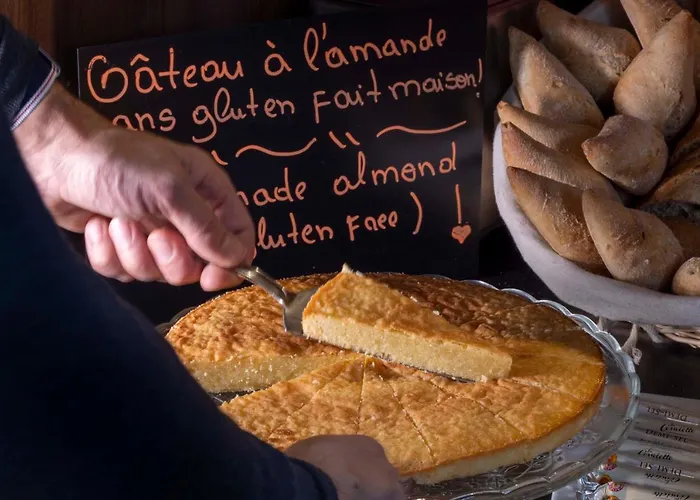 Gâteau à l'amande
ans gluten Fait maison!
ade almond
gluten Free) !